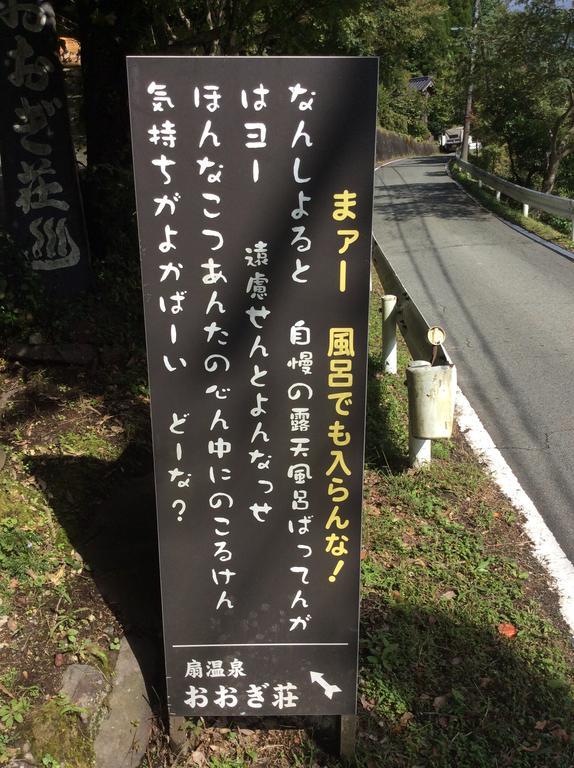 まァー 風呂でも入らんな！
なんしよると 自慢の露天風呂ばってんが
はヨー 遠慮せんとよんなっせ
ほんなこつあんたの心ん中にのこるけん
気持ちがよかばーい どーな？
扇温泉
おおぎ荘
おおぎ荘